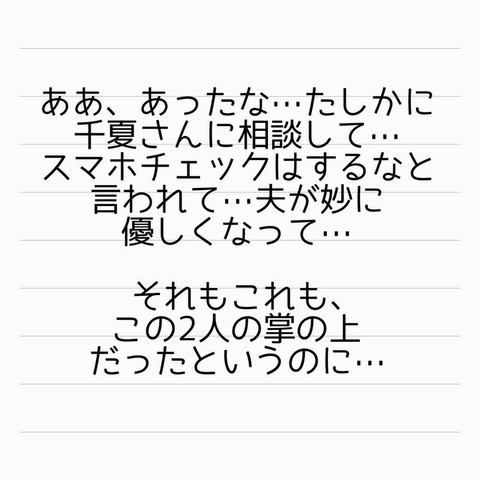 ああ、あったな…たしかに
千夏さんに相談して…
スマホチェックはするなと
言われて…夫が妙に
優しくなって…
それもこれも、
この2人の掌の上
だったというのに…